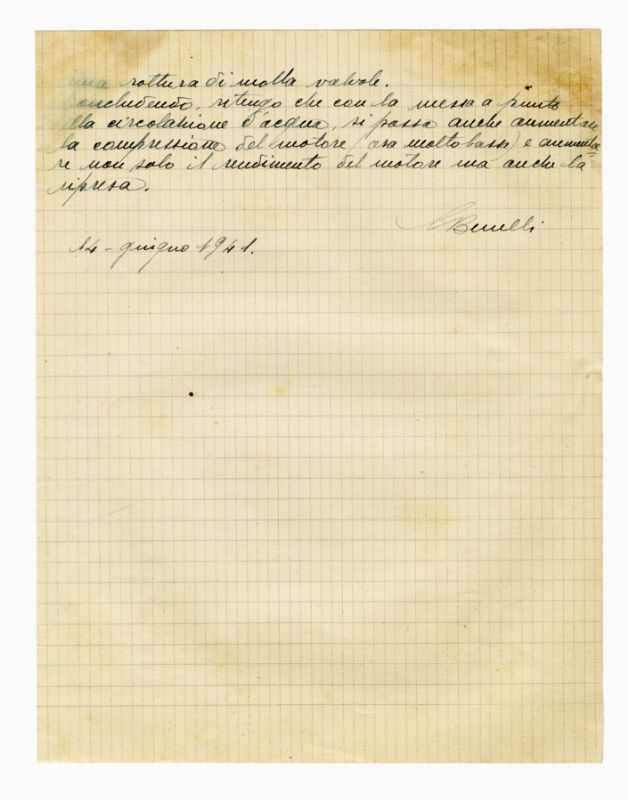 una rottura di molla valvole.
oncludendo, ritengo che con la messa a punto
ella circolazione d'acqua, si possa anche aumentare
la compressione del motore (ora molto bassa) e aumenta=
re non solo il rendimento del motore ma anche la
ripresa.
Benelli
14 - giugno 1941.